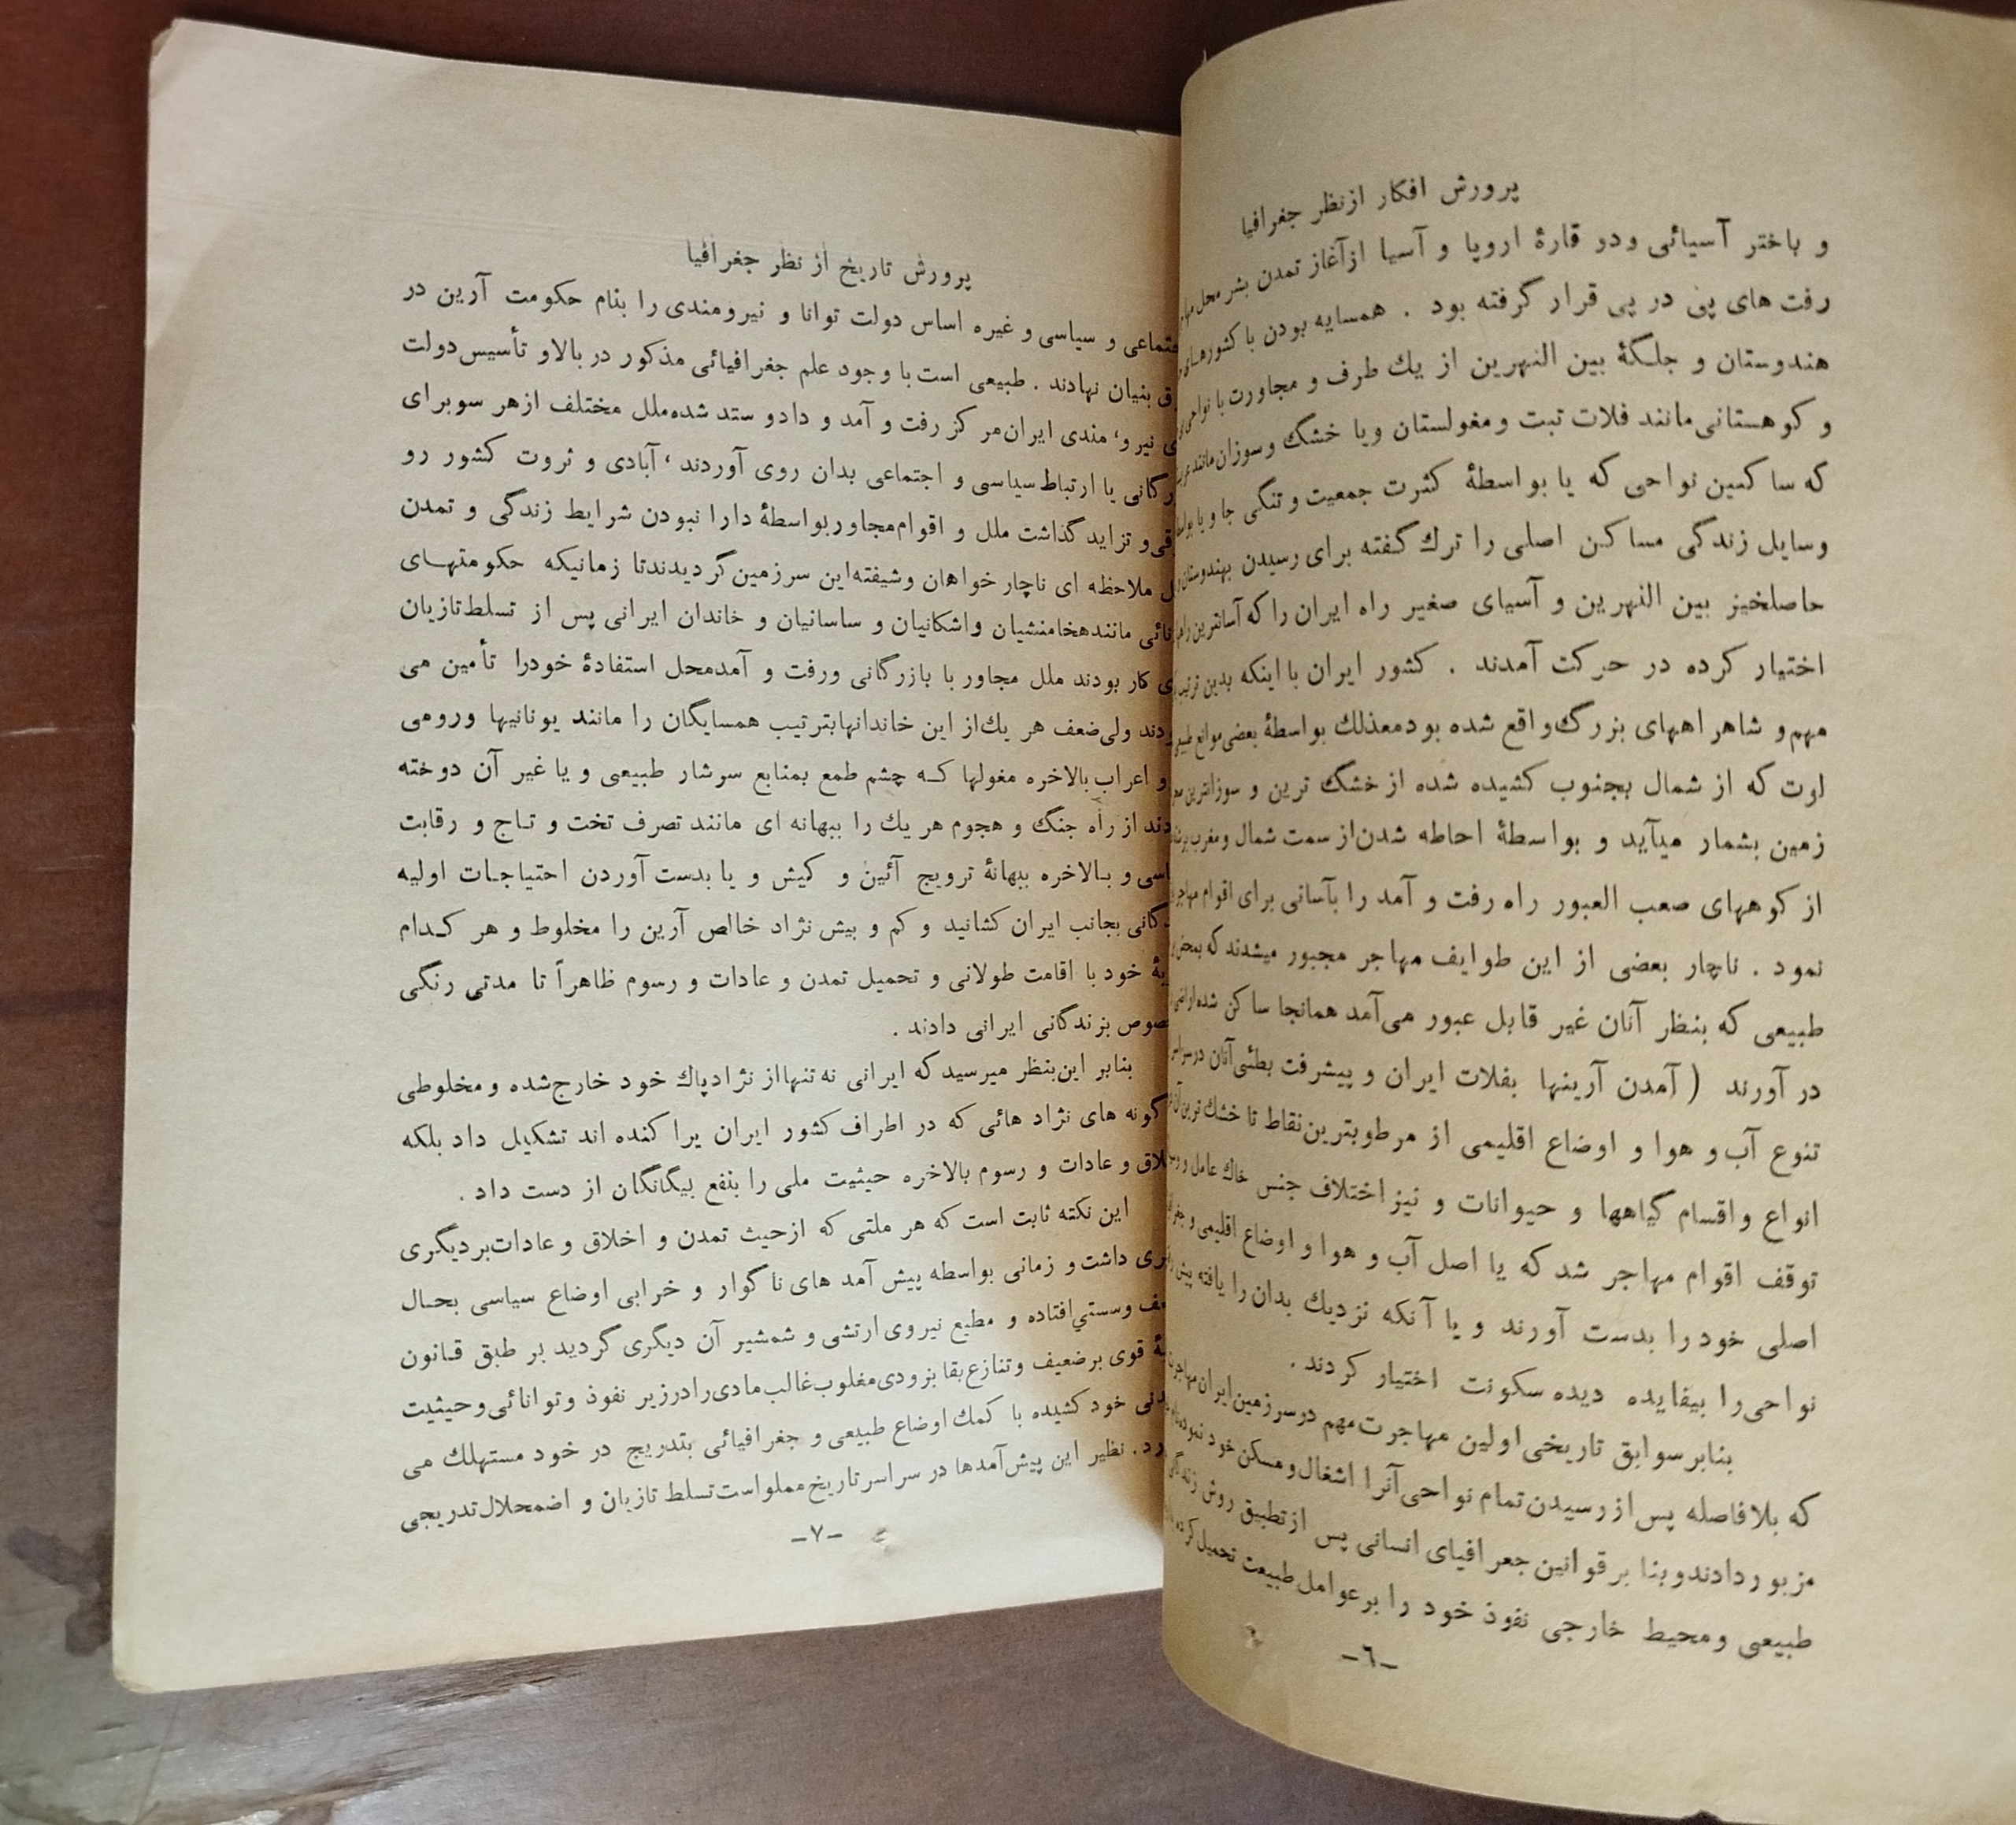 پرورش افکار از نظر جغرافیا
و باختر آسیائی و دو قارهٔ اروپا و آسیا از آغاز تمدن بشر محل
رفت های پی در پی قرار گرفته بود . همسایه بودن با کشورهای
هندوستان و جلگهٔ بین النهرین از یك طرف و مجاورت با نواحی
و کوهستانی مانند فلات تبت و مغولستان و یا خشك و سوزان مانند
که ساکنین نواحی که یا بواسطهٔ کثرت جمعیت و تنگی جا و یا
وسایل زندگی مساکن اصلی را ترك گفته برای رسیدن بهندوستان
حاصلخیز بین النهرین و آسیای صغیر راه ایران را که آسانترین
اختیار کرده در حرکت آمدند . کشور ایران با اینکه بدین ترتیب
مهم و شاهراههای بزرگ واقع شده بود معذلك بواسطهٔ بعضی موانع
لوت که از شمال بجنوب کشیده شده از خشك ترین و سوزانترین
زمین بشمار میآید و بواسطهٔ احاطه شدن از سمت شمال و مغرب
از کوههای صعب العبور راه رفت و آمد را بآسانی برای اقوام
نمود . ناچار بعضی از این طوایف مهاجر مجبور میشدند که
طبیعی که بنظر آنان غیر قابل عبور می‌آمد همانجا ساکن شده
در آورند ( آمدن آرینها بفلات ایران و پیشرفت بطئی آنان
تنوع آب و هوا و اوضاع اقلیمی از مرطوبترین نقاط تا خشك ترین
انواع و اقسام گیاهها و حیوانات و نیز اختلاف جنس خاك عامل
توقف اقوام مهاجر شد که یا اصل آب و هوا و اوضاع اقلیمی و
اصلی خود را بدست آورند و یا آنکه نزدیك بدان را یافته پیش
نواحی را بیفایده دیده سکونت اختیار کردند .
بنابر سوابق تاریخی اولین مهاجرت مهم در سرزمین ایران
که بلافاصله پس از رسیدن تمام نواحی آنرا اشغال و مسکن خود
مزبور دادند و بنا بر قوانین جعرافیای انسانی پس از تطبیق روش
طبیعی و محیط خارجی نفوذ خود را بر عوامل طبیعت تحمیل
-٦-
پرورش تاریخ از نظر جغرافیا
و سیاسی و غیره اساس دولت توانا و نیرومندی را بنام حکومت آرین در
بنیان نهادند . طبیعی است با وجود علم جغرافیائی مذکور در بالا و تأسیس دولت
نیرو، مندی ایران مرکز رفت و آمد و داد و ستد شده ملل مختلف از هر سو برای
یا ارتباط سیاسی و اجتماعی بدان روی آوردند ، آبادی و ثروت کشور رو
و تزاید گذاشت ملل و اقوام مجاور بواسطهٔ دارا نبودن شرایط زندگی و تمدن
ملاحظه ای ناچار خواهان و شیفته این سرزمین گردیدند تا زمانیکه حکومتهای
مانند هخامنشیان و اشکانیان و ساسانیان و خاندان ایرانی پس از تسلط تازیان
کار بودند ملل مجاور با بازرگانی و رفت و آمد محل استفادهٔ خود را تأمین می
ولی ضعف هر یك از این خاندانها بترتیب همسایگان را مانند یونانیها و رومی
و اعراب بالاخره مغولها که چشم طمع بمنابع سرشار طبیعی و یا غیر آن دوخته
از راه جنگ و هجوم هر یك را ببهانه ای مانند تصرف تخت و تاج و رقابت
و بالاخره ببهانهٔ ترویج آئین و کیش و یا بدست آوردن احتیاجات اولیه
بجانب ایران کشانید و کم و بیش نژاد خالص آرین را مخلوط و هر کدام
خود با اقامت طولانی و تحمیل تمدن و عادات و رسوم ظاهراً تا مدتی رنگی
بزندگانی ایرانی دادند .
بنابر این بنظر میرسید که ایرانی نه تنها از نژاد پاك خود خارج شده و مخلوطی
گونه های نژاد هائی که در اطراف کشور ایران پراکنده اند تشکیل داد بلکه
و عادات و رسوم بالاخره حیثیت ملی را بنفع بیگانگان از دست داد .
این نکته ثابت است که هر ملتی که از حیث تمدن و اخلاق و عادات بر دیگری
داشت و زمانی بواسطه پیش آمد های ناگوار و خرابی اوضاع سیاسی بحال
وسستي افتاده و مطیع نیروی ارتشی و شمشیر آن دیگری گردید بر طبق قانون
قوی بر ضعیف و تنازع بقا بزودی مغلوب غالب مادی را در زیر نفوذ و توانائی و حیثیت
خود کشیده با کمك اوضاع طبیعی و جغرافیائی بتدریج در خود مستهلك می
نظیر این پیش آمدها در سراسر تاریخ مملو است تسلط تازیان و اضمحلال تدریجی
-٧-